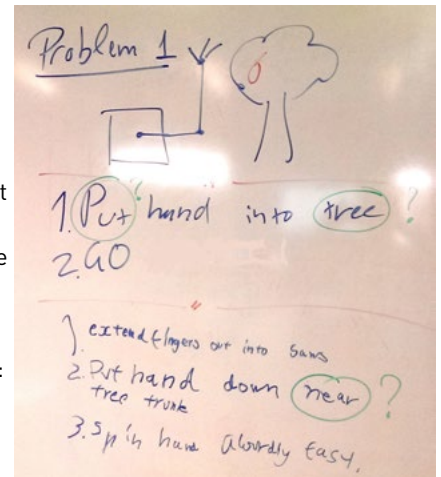 Problem 1
1. Put hand into tree ?
?
2. GO
1. extend fingers out into
2. Put hand down near ?
tree trunk
3. Spin hand easy.
t
e
: